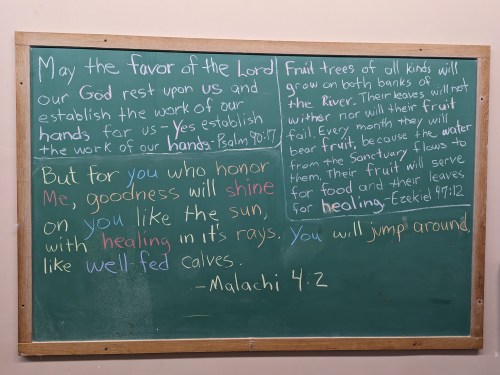 May the favor of the Lord
our God rest upon us and
establish the work of our
hands for us - Yes establish
the work of our hands - Psalm 90:17
Fruit trees of all kinds will
grow on both banks of
the River. Their leaves will not
wither nor will their fruit
fail. Every month they will
bear fruit, because the water
from the Sanctuary flows to
them. Their fruit will serve
for food and their leaves
for healing. - Ezekiel 47:12
But for you who honor
Me, goodness will shine
on you like the sun,
with healing in it's rays. You will jump around,
like well-fed calves.
- Malachi 4:2